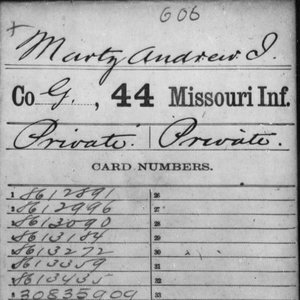 606
Marty Andrew J.
Co G., 44 Missouri Inf.
Private. Private.
CARD NUMBERS.
1 8612891 26
2 8612996
8613090
8613184
8613272
8613359
8613435
30835909 33